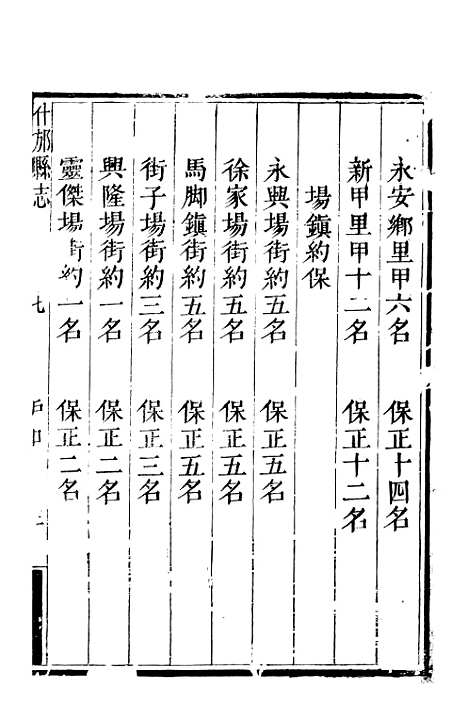 永安鄉里甲六名　保正十四名
新甲里甲十二名　保正十二名
場鎮約保
永興場街約五名　保正五名
徐家場街約五名　保正五名
馬脚鎮街約五名　保正五名
街子場街約三名　保正三名
興隆場街約一名　保正二名
靈傑場街約一名　保正二名
什邡縣志　七　戶口